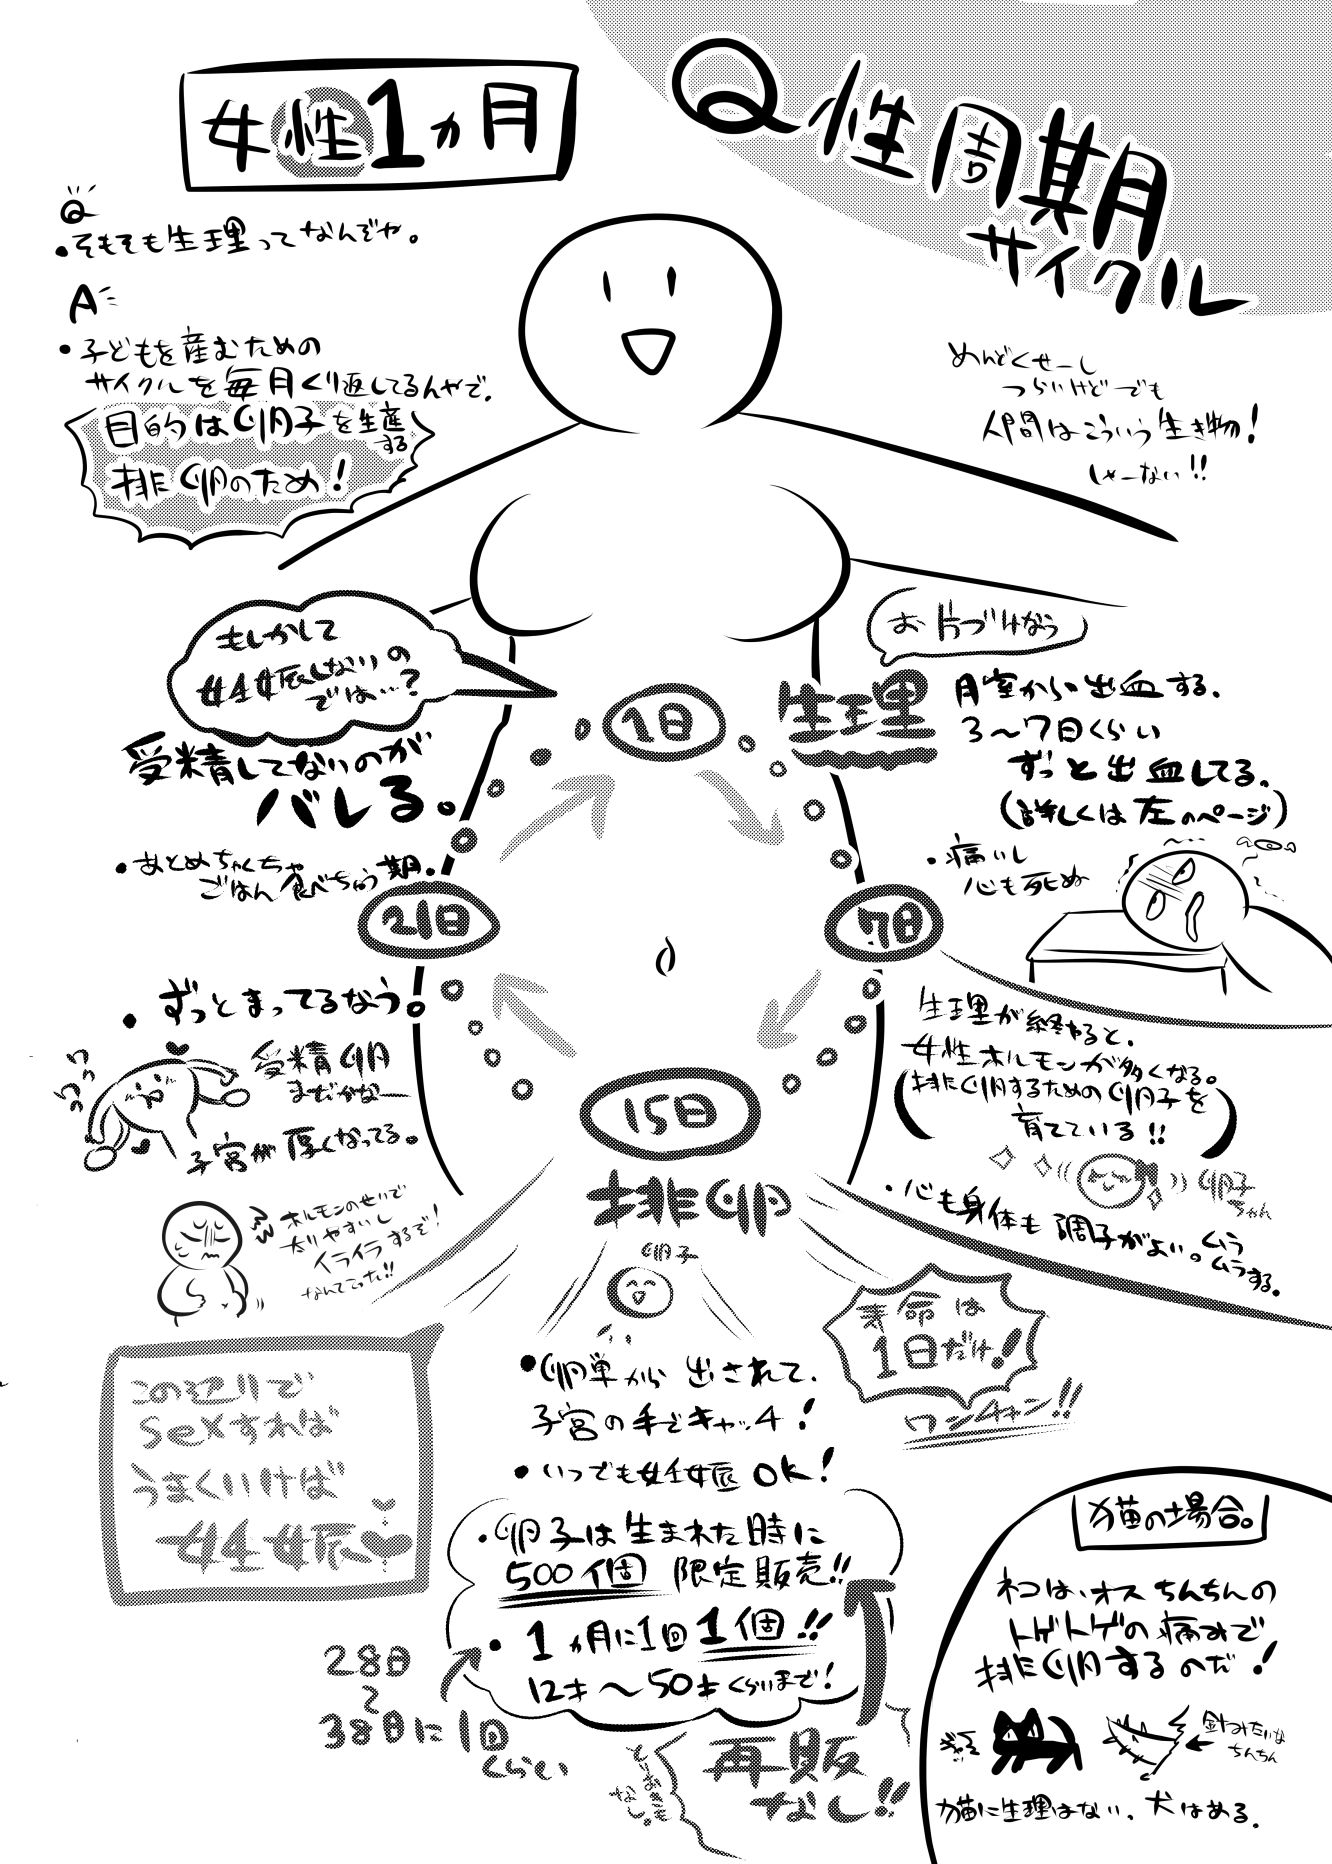 女性1ヵ月
Q性周期
サイクル
Q
・そもそも生理ってなんぞや。
A
・子どもを産むための
サイクルを毎月くり返してるんやで。
目的は卵子を生産する
排卵のため!
めんどくせーし
つらいけどでも
人間はこういう生き物!
しゃーない!!
もしかして
妊娠しないの
では…?
受精してないのが
バレる。
・あとめちゃくちゃ
ごはん食べちゃう期。
1日
お片づけなう
生理
月室から出血する。
3〜7日くらい
ずっと出血してる。
(詳しくは左のページ)
・痛いし
心も死ぬ
21日
7日
・ずっとまってるなう。
受精卵
まだかなー
子宮が厚くなってる。
ホルモンのせいで
太りやすいし
イライラするぞ!
なんてこった!!
生理が終わると、
女性ホルモンが多くなる。
(排卵するための卵子を
育てている!!)
卵子
ちゃん
・心も身体も調子がよい。ムラ
ムラする。
15日
排卵
卵子
寿命は
1日だけ!
ワンチャン!!
・卵巣から出されて、
子宮の手でキャッチ!
・いつでも妊娠OK!
この辺りで
sexすれば
うまくいけば
妊娠
・卵子は生まれた時に
500個限定販売!!
・1ヵ月に1回1個!!
12才〜50才くらいまで!
28日
〜
38日に1回
くらい
とりおきも
なし。
再販
なし!!
猫の場合。
ネコは、オスちんちんの
トゲトゲの痛みで
排卵するのだ!
針みたいな
ちんちん
猫に生理はない、犬はある。